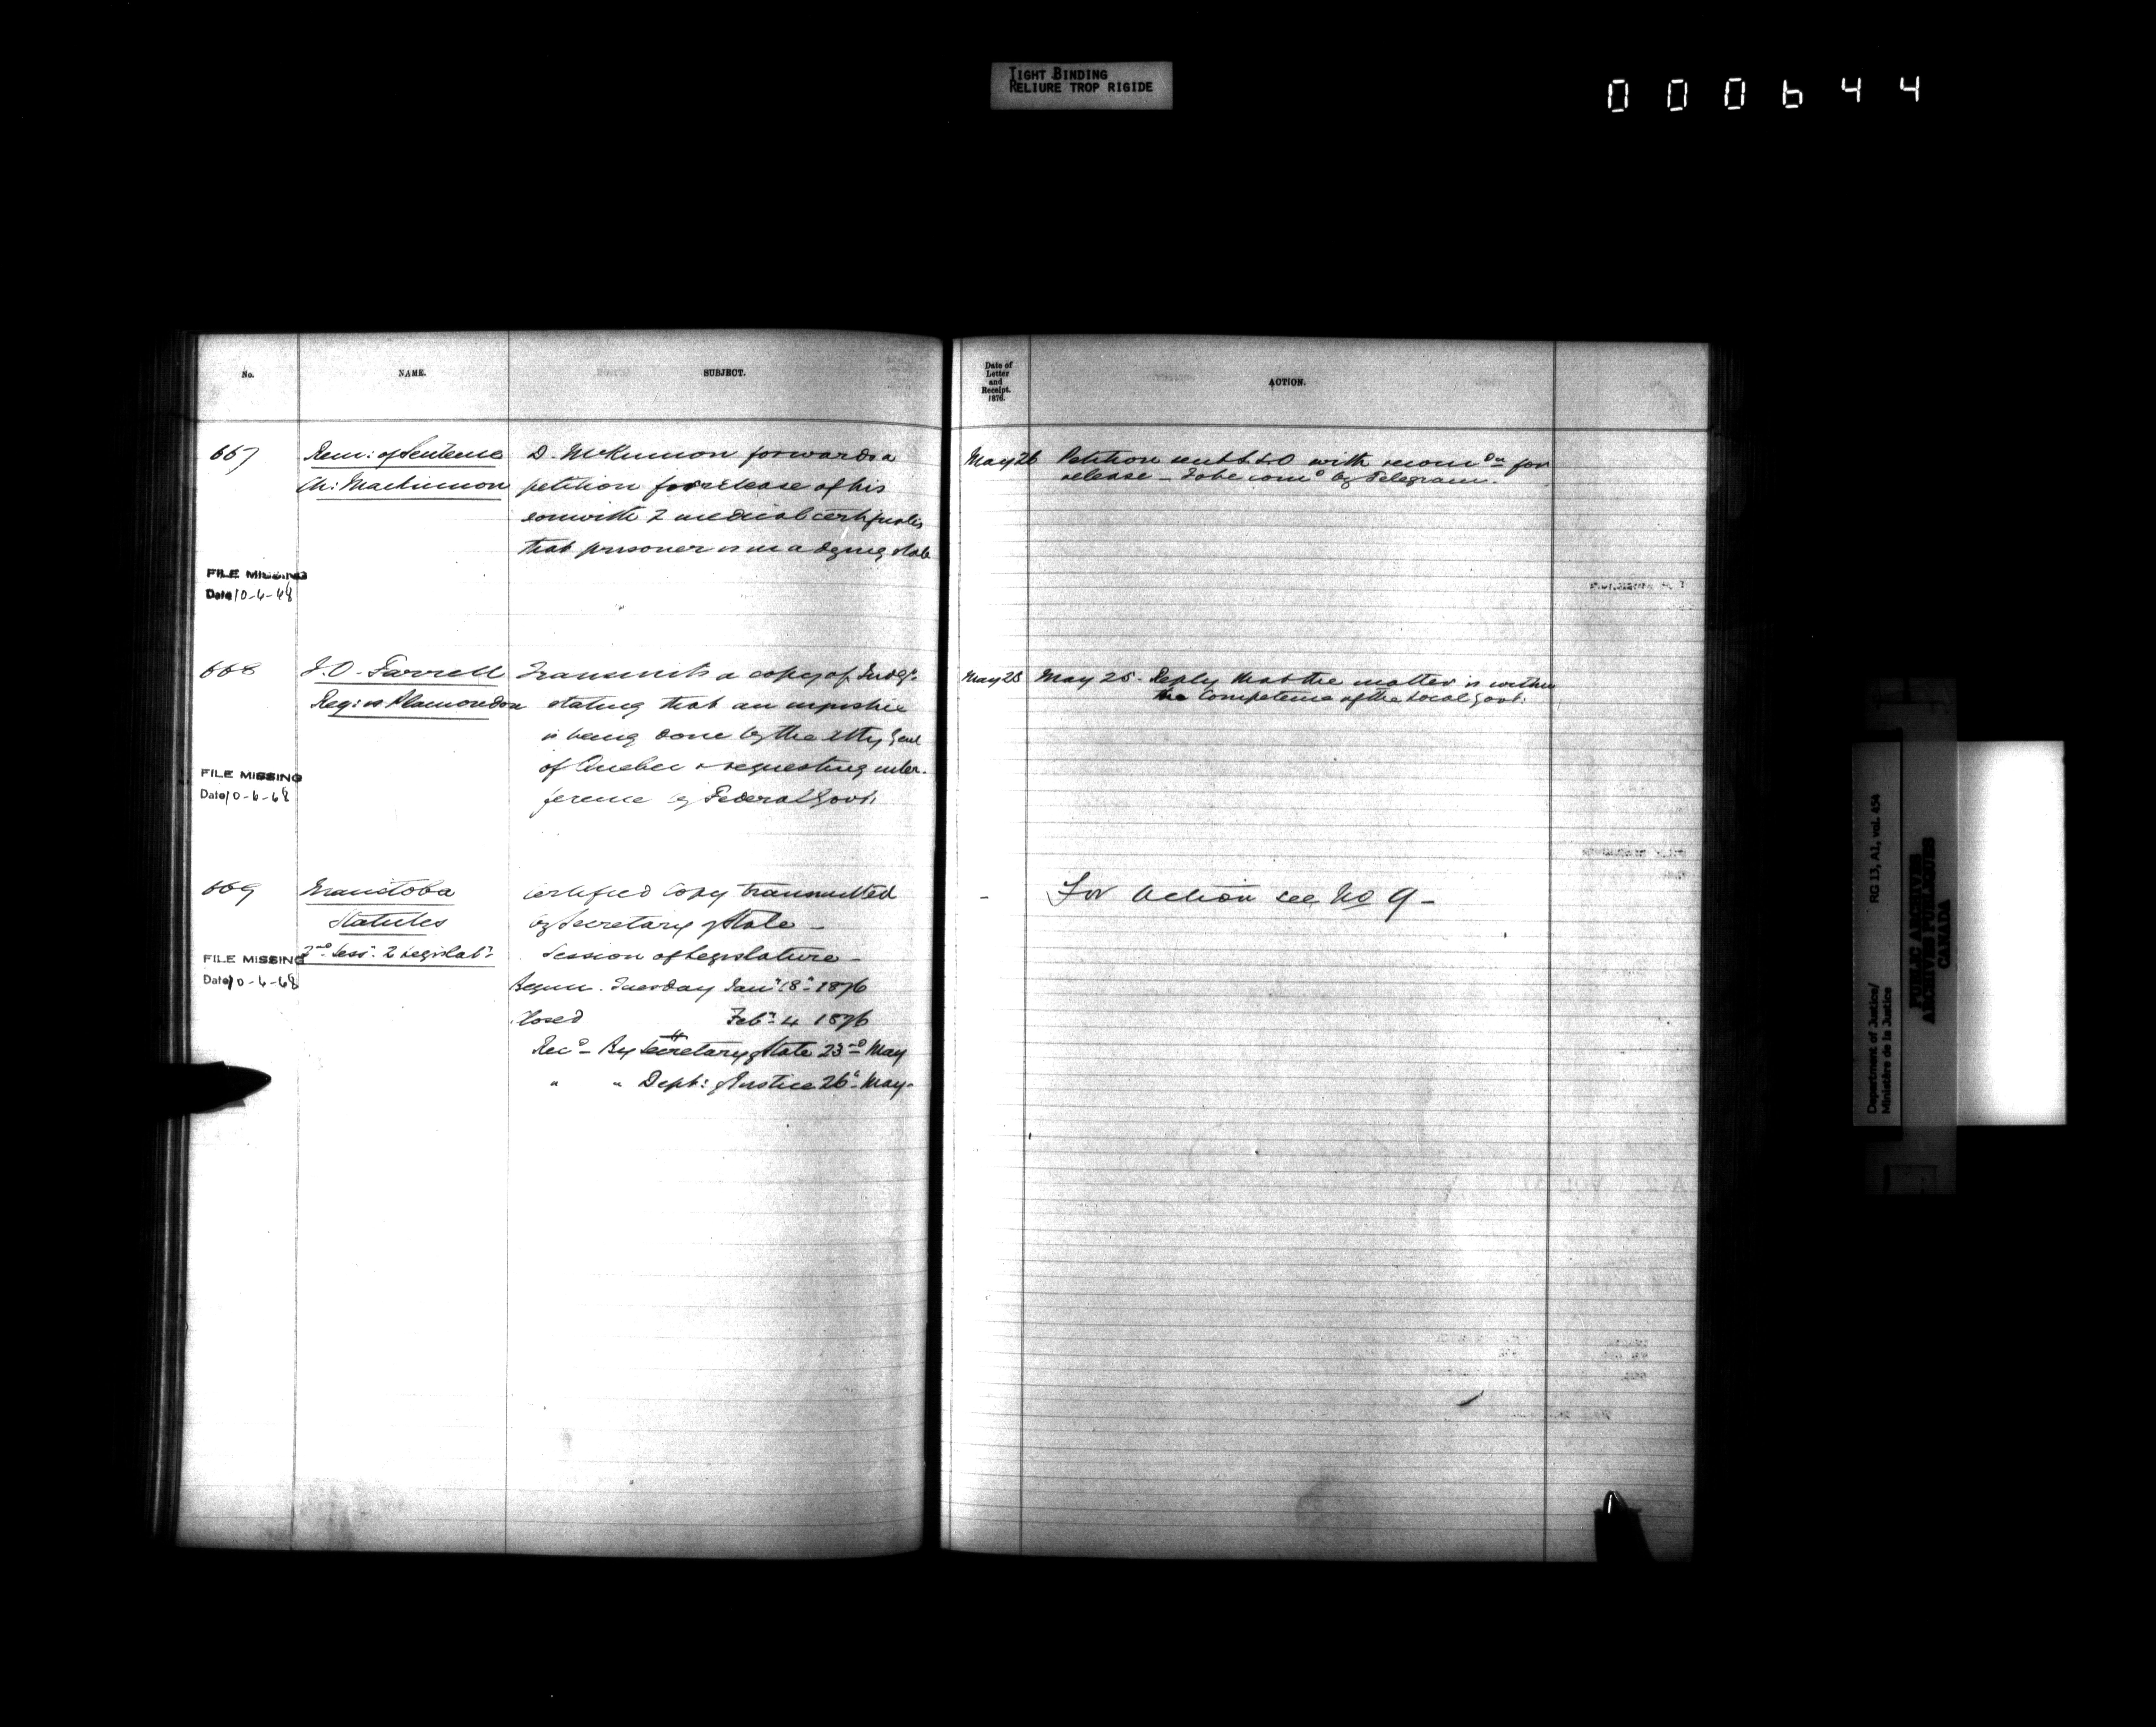 TIGHT BINDING
RELIURE TROP RIGIDE
000644
No.
NAME.
SUBJECT.
Date of
Letter
and
Receipt.
1876.
ACTION.
667
Rem: of Sentence
McKinnon
D. McKinnon forwards a
petition for release of his
son with 2 medical certificates
that prisoner is in a dying state
May 26
Petition sent with recom for
release - To be com by Telegram.
FILE MISSING
Date 10-6-68
668
J. O. Farrell
Reg: vs Plamondon
Transmits a copy of Judg:
stating that an injustice
is being done by the Atty Genl
of Quebec & requesting inter-
ference by Federal Govt:
May 25
May 25 - Reply that the matter is within
the Competence of the Local Govt:
FILE MISSING
Date 10-6-68
669
Manitoba
Statutes
2nd Sess: 2 Legislat:
Certified Copy transmitted
by Secretary of State -
Session of Legislature -
Begun. Tuesday Jany 18th 1876
Closed Feby 4 1876
Recd - By Secretary of State 23rd May
" " Dept: of Justice 26th May -
-
For Action see No 9 -
FILE MISSING
Date 10-6-68
Department of Justice/
Ministère de la Justice
RG 13, A1, vol. 454
PUBLIC ARCHIVES
ARCHIVES PUBLIQUES
CANADA